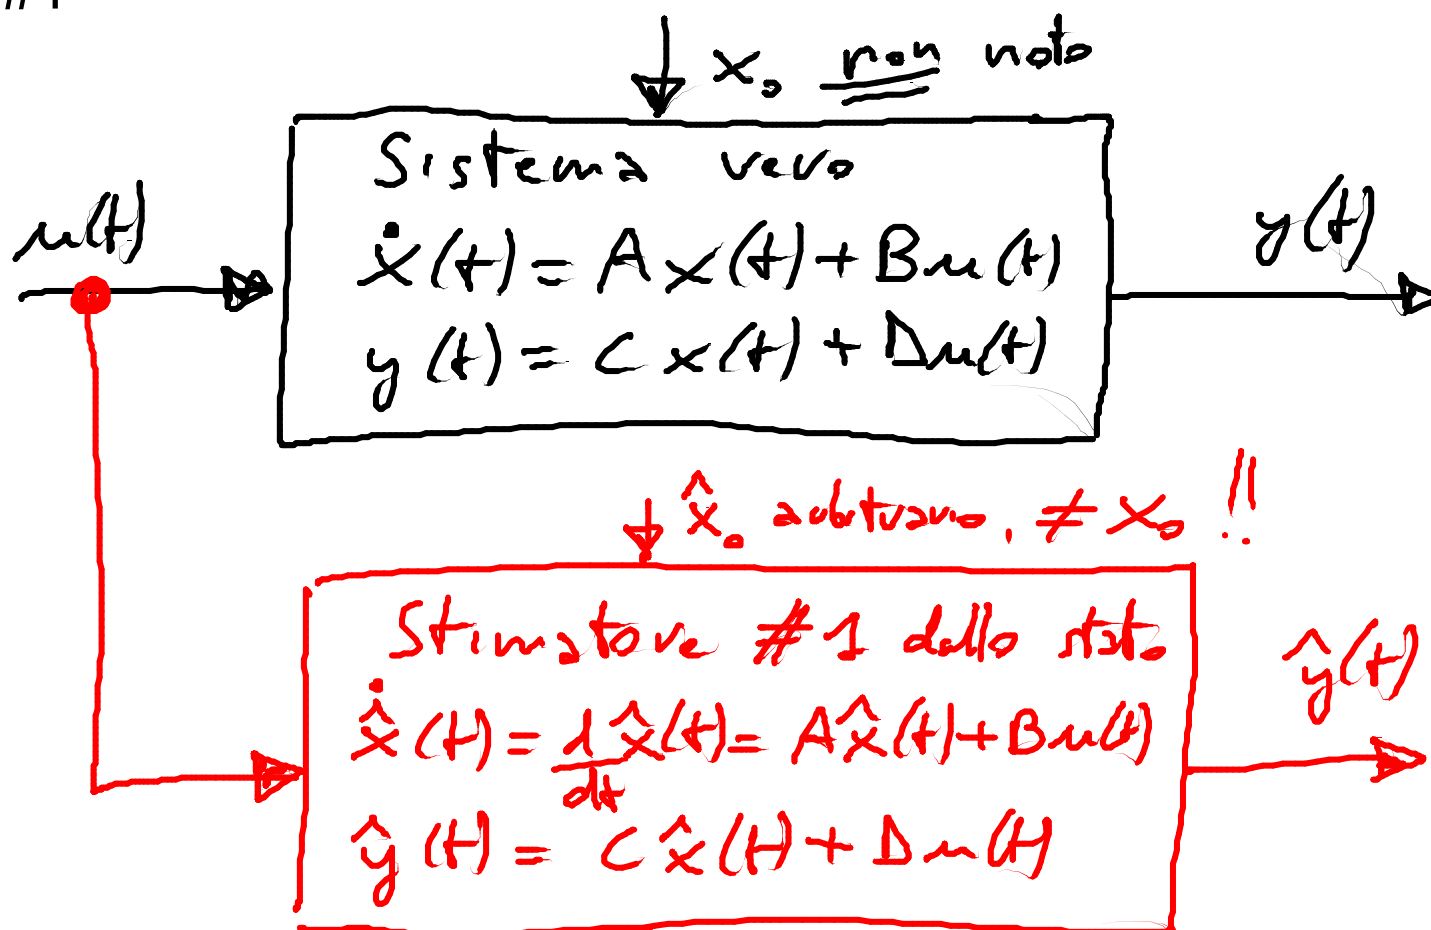 x₀ non noto
Sistema vero
u(t)
ẋ(t) = A x(t) + B u(t)
y(t)
y(t) = C x(t) + D u(t)
x̂₀ arbitrario, ≠ x₀ !!
Stimatore #1 dello stato
ŷ(t)
x̂̇(t) = d/dt x̂(t) = A x̂(t) + B u(t)
ŷ(t) = C x̂(t) + D u(t)